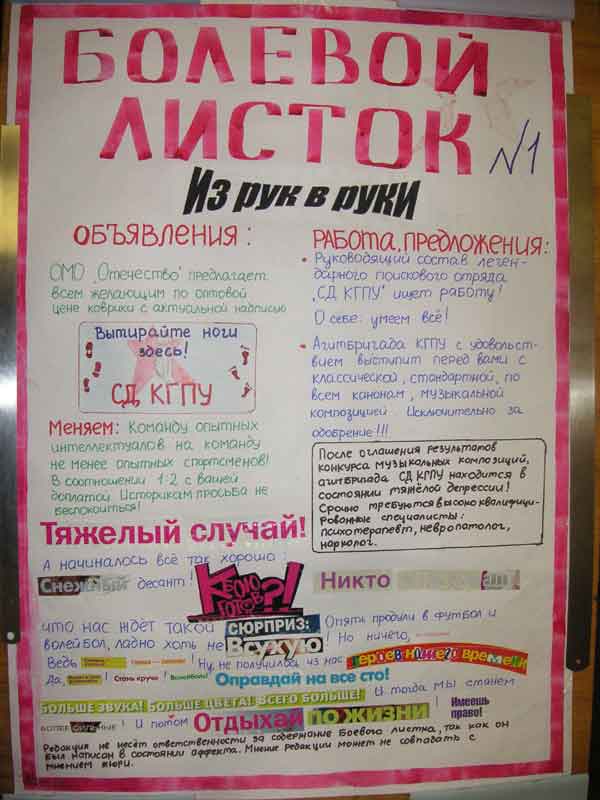 БОЛЕВОЙ
ЛИСТОК №1
Из рук в руки
ОБЪЯВЛЕНИЯ:
ОМО „Отечество" предлагает
всем желающим по оптовой
цене коврики с актуальной надписью
Вытирайте ноги
здесь!
СД КГПУ
Меняем: Команду опытных
интеллектуалов на команду
не менее опытных спортсменов!
В соотношении 1:2 с вашей
доплатой. Историкам просьба не
беспокоиться!
РАБОТА. ПРЕДЛОЖЕНИЯ:
Руководящий состав леген-
дарного поискового отряда
„СД КГПУ" ищет работу!
О себе: умеем всё!
Агитбригада КГПУ с удовольст-
вием выступит перед вами с
классической, стандартной, по
всем канонам, музыкальной
композицией. Исключительно за
одобрение!!!
После оглашения результатов
конкурса музыкальных композиций,
агитбригада СД КГПУ находится в
состоянии тяжёлой депрессии!
Срочно требуются высококвалифици-
рованные специалисты:
психотерапевт, невропатолог,
нарколог.
Тяжелый случай!
А начиналось всё так хорошо:
Снежный десант!
К бою готов?!
Никто
что нас ждёт такой СЮРПРИЗ: Опять продули в футбол и
волейбол, ладно хоть не Всухую! Но ничего,
Ведь ! Ну, не получилось из нас героев нашего времени
Да, ! Стань круче! Волейбола! Оправдай на все сто!
БОЛЬШЕ ЗВУКА! БОЛЬШЕ ЦВЕТА! ВСЕГО БОЛЬШЕ! И тогда мы станем
более ! И потом Отдыхай по жизни ! Имеешь право!
Редакция не несёт ответственности за содержание Боевого листка, так как он
был написан в состоянии аффекта. Мнение редакции может не совпадать с
мнением жюри.